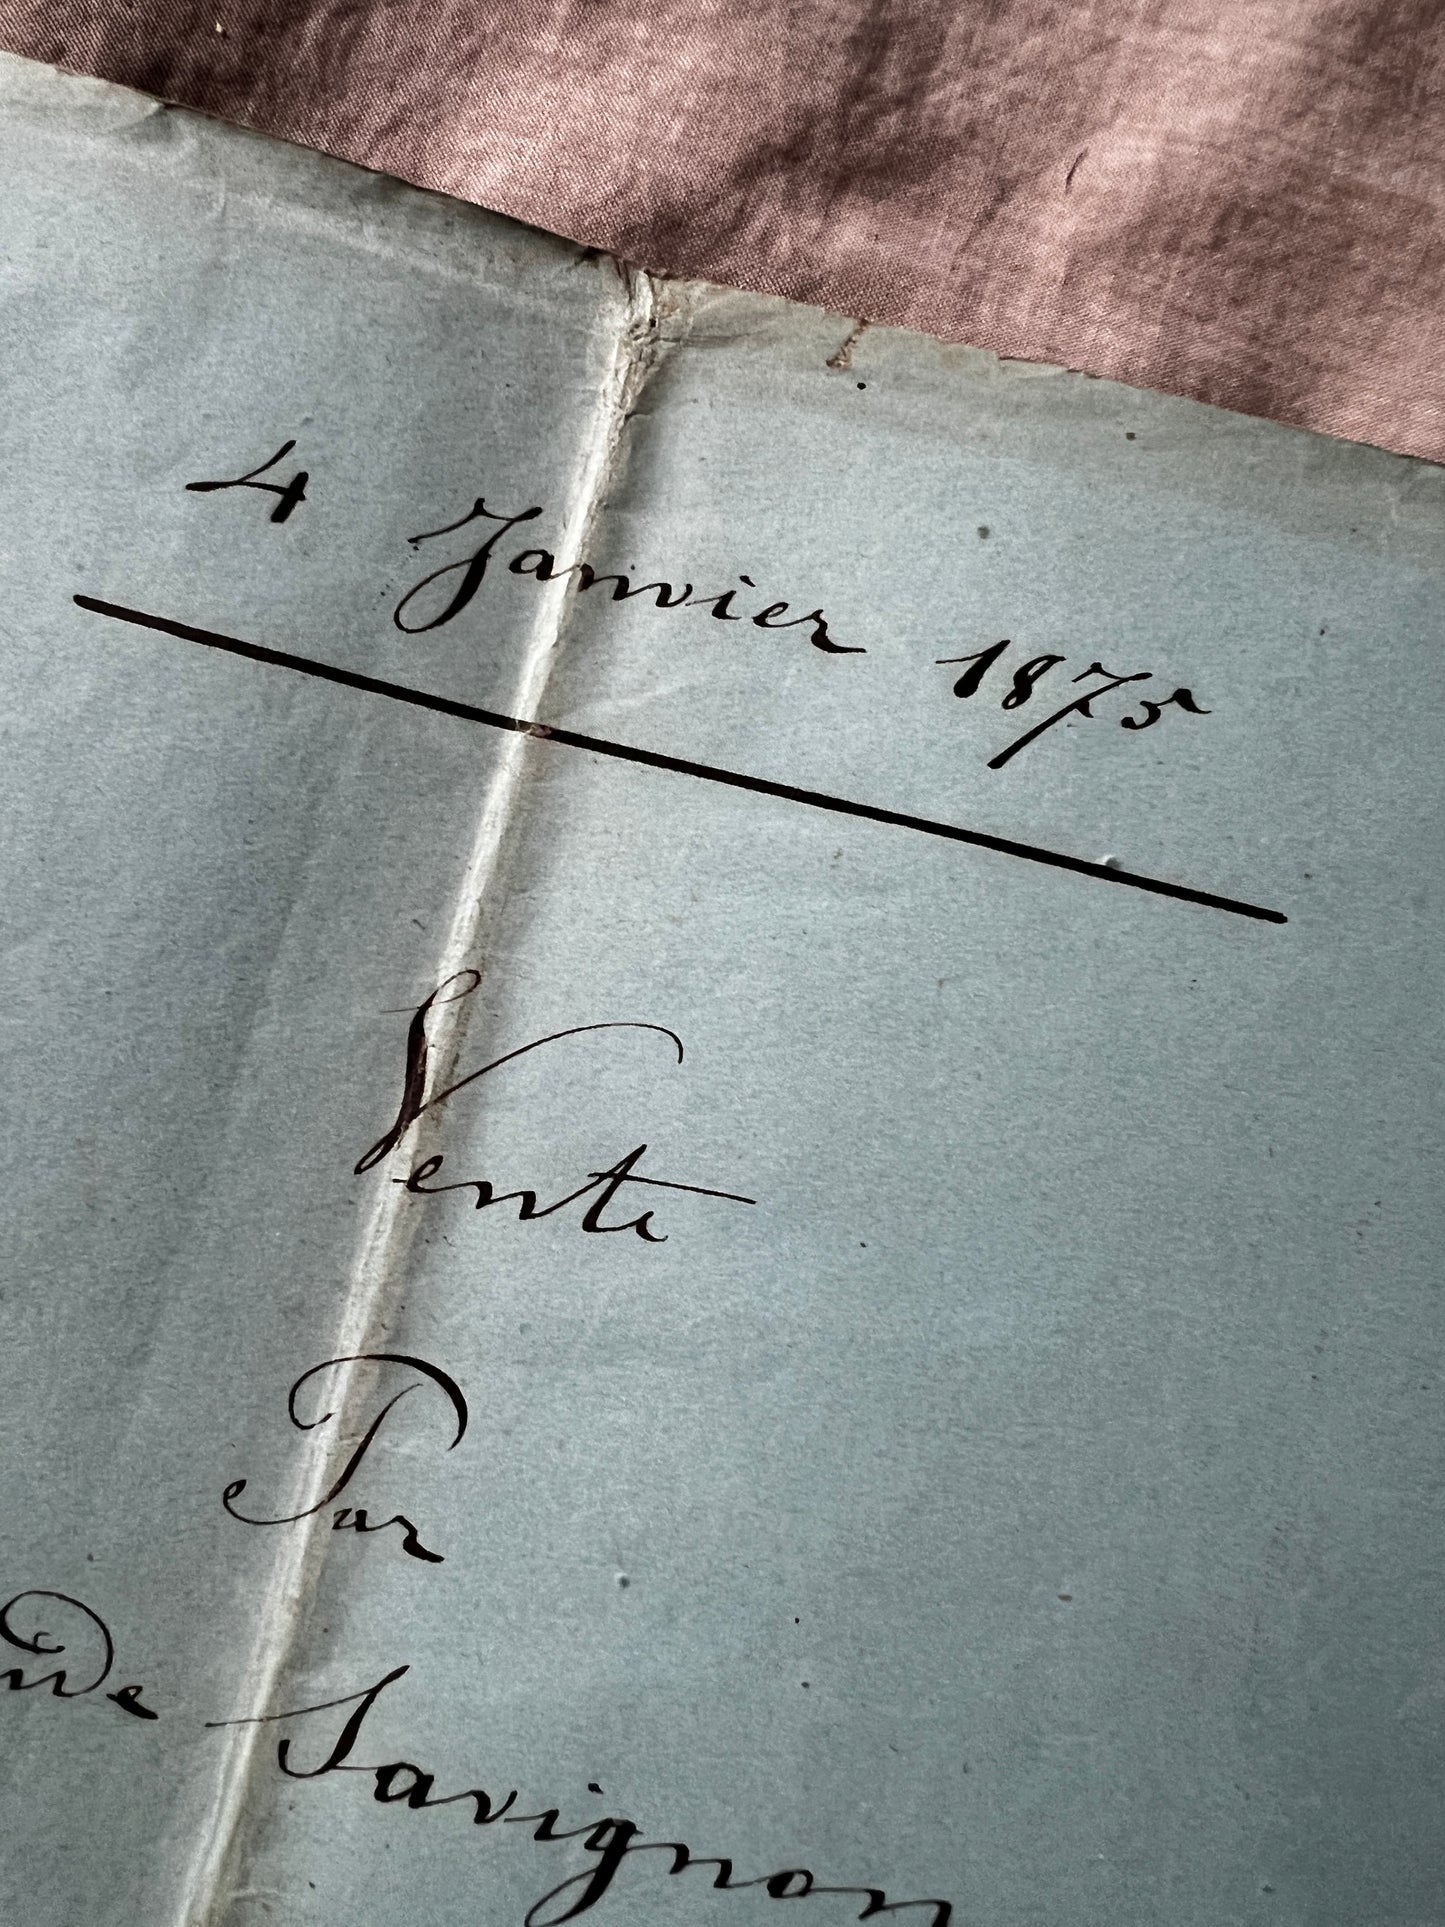 4 Janvier 1875
Vente
Par
de Savignon